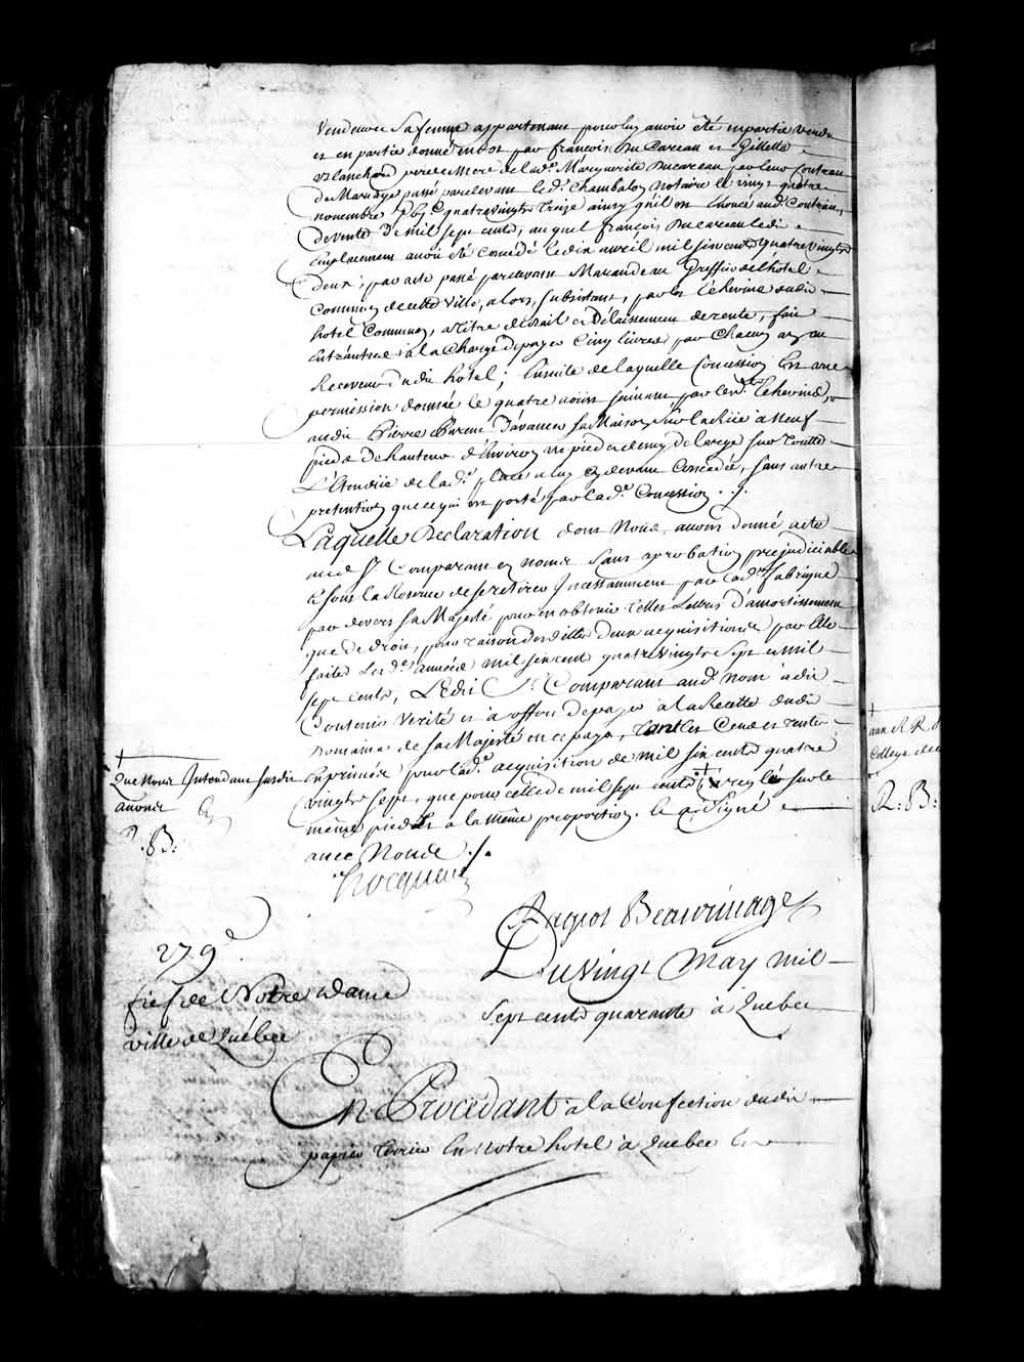 Vandeuvre Sa femme appartenant pour luy avoir été en partie vendu
et en partie donné en dot par françois Ducareau et Gillette
Blanchard pere et Mere de lad.e Marguerite Ducareau par leur Contrau
De Mariage passé pardevant led.t Chambalon Notaire le vingt quatre
novembre quatrevingts Treize ainsy qu'il en Enoncé aud. Contrau,
de vente De mil sept cents, auquel françois Ducareau ledit
Emplacement avoit été concédé le dix avril mil six cents quatrevingts
Deux, par acte passé pardevant Greffier de l'hôtel
Commun de cette Ville, alors, subsistant, par les Echevins dudit
hotel Commun, à titre de Bail et Délaissement de rente, fait
à la Charge de payer Cinq livres par Chacun an au
Receveur dudit hotel; Ensuite de laquelle Concession Est une
permission donnée le quatre par lesd. Echevins,
audit Pierre Parent D'avancer sa Maison sur la Rüe à neuf
pieds De hauteur d'Environ un pied et demy de large sur toutte
L'Etendüe de lad.e place a luy cy devant Concedée, sans autre
pretention que ce qui est porté par lad.e Concession ./.
Laquelle Declaration dont Nous avons donné acte
aud. S.r Comparant en nom sans aprobation prejudiciable
& sous la Reserve de se retirer Incessamment par lad. fabrique
par devers sa Majesté pour en obtenir telles Lettres D'amortissement
que de droit, pour raison desdittes Deux acquisitions par Elle
faites lesd.es années mil six cent quatrevingts Sept et mil
sept cents, Ledit S.r Comparant aud. nom à dit
Contenir Verité et à offert de payer à la Recette dudit
Domaine de sa Majesté en ce pays, tant les Cens et rentes
Exprimés pour lad.e acquisition de mil six cents quatre
vingts sept, que pour celle de mil sept cents reglé sur le
même pied & à la même proportion. & a Signé
avec Nous ./.
Que Nous Intendant susdit
avons
R. B:
Hocquart
Jacquot Beaurivage
279e
Du vingt May mil
Sept cents quarante à Quebec
fief de Notre Dame
ville de Québec
En Procédant à la Confection dudit
papier terrier En Notre hotel à Quebec Est
Collège de
R. B: